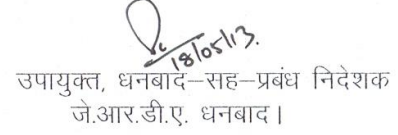 18/05/13.
उपायुक्त, धनबाद-सह-प्रबंध निदेशक
जे.आर.डी.ए. धनबाद।